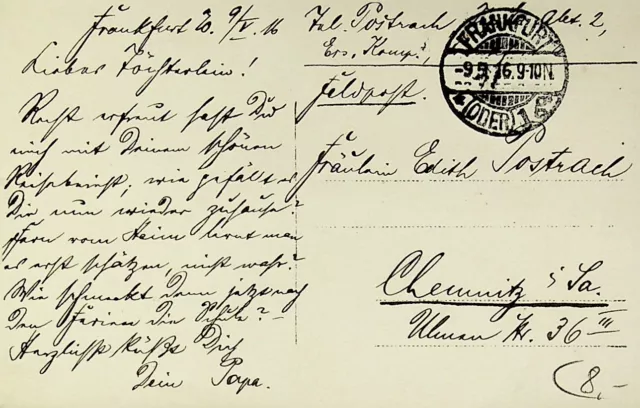 Frankfurt O. 9/V. 16
Liebes Töchterlein!
Recht erfreut hast Du
mich mit Deinem schönen
Reisebericht; wie gefällt es
Dir nun wieder zuhause?
Fern vom Heim lernt man
es erst schätzen, nicht wahr?
Wie schmeckt denn jetzt nach
den Ferien die Schule? –
Herzlichst küßt Dich
Dein Papa.
Tel. Postrach Abt. 2,
Ers. Komp.,
Feldpost.
FRANKFURT
-9.5.16.9-10N.
* (ODER) 1
Fräulein Edith Postrach
Chemnitz i/Sa.
Ulmen Str. 36 III
8,-